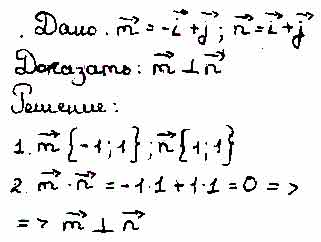 . Дано. m⃗ = -i⃗ + j⃗ ; n⃗ = i⃗ + j⃗
Доказать: m⃗ ⊥ n⃗
Решение:
1. m⃗ {-1; 1} ; n⃗ {1; 1}
2. m⃗ · n⃗ = -1·1 + 1·1 = 0 = >
= > m⃗ ⊥ n⃗